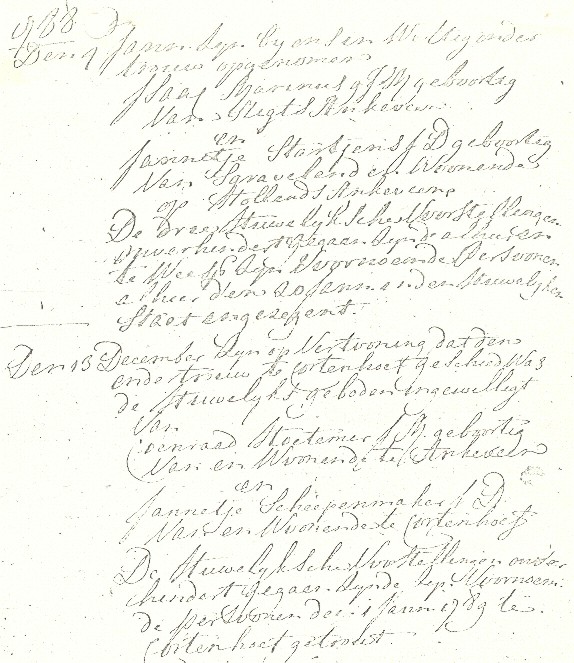 1788
Den 4 Jann. Zyn by ons en W. Ueginder
trouw opgenomen
Isaac Marinus g J M geboortig
Van Stegts Ankeveen
en
Jannetje Stortjens J D geboortig
Van Sgraveland en Woonende
op Hollands Ankeveen,
De Drae Huwelyksche Voorstellingen
onverhindert gegaen Zynde alhier en
te Weesp Zyn Voornoemde Persoonen
alhier den 20 Jann. in den Huwelyken
Staet ingezegent.
Den 13 December Zyn op Vertooning dat den
ondertrouw te Cortenhoef geschied Was
de Huwelyks geboden ingewilligt
Van
Coenraad Stoetemer J M geboortig
Van en Woonende te Ankeveen
en
Jannetje Scheepenmaker J D
Van en Woonende te Cortenhoef
De Huwelyksche Voorstellingen onver
hindert gegaen Zynde Zyn Voornoem
de Persoonen den 1 Jann 1789 te
Cortenhoef getrouwt